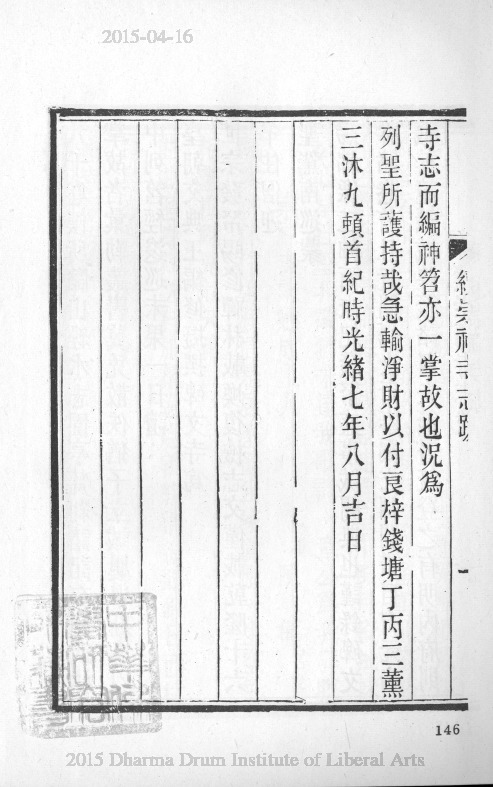 2015-04-16
寺志而編神笤亦一掌故也況爲
列聖所護持哉急輸淨財以付良梓錢塘丁丙三薰
三沐九頓首紀時光緒七年八月吉日
寺志跋
一
146
2015 Dharma Drum Institute of Liberal Arts